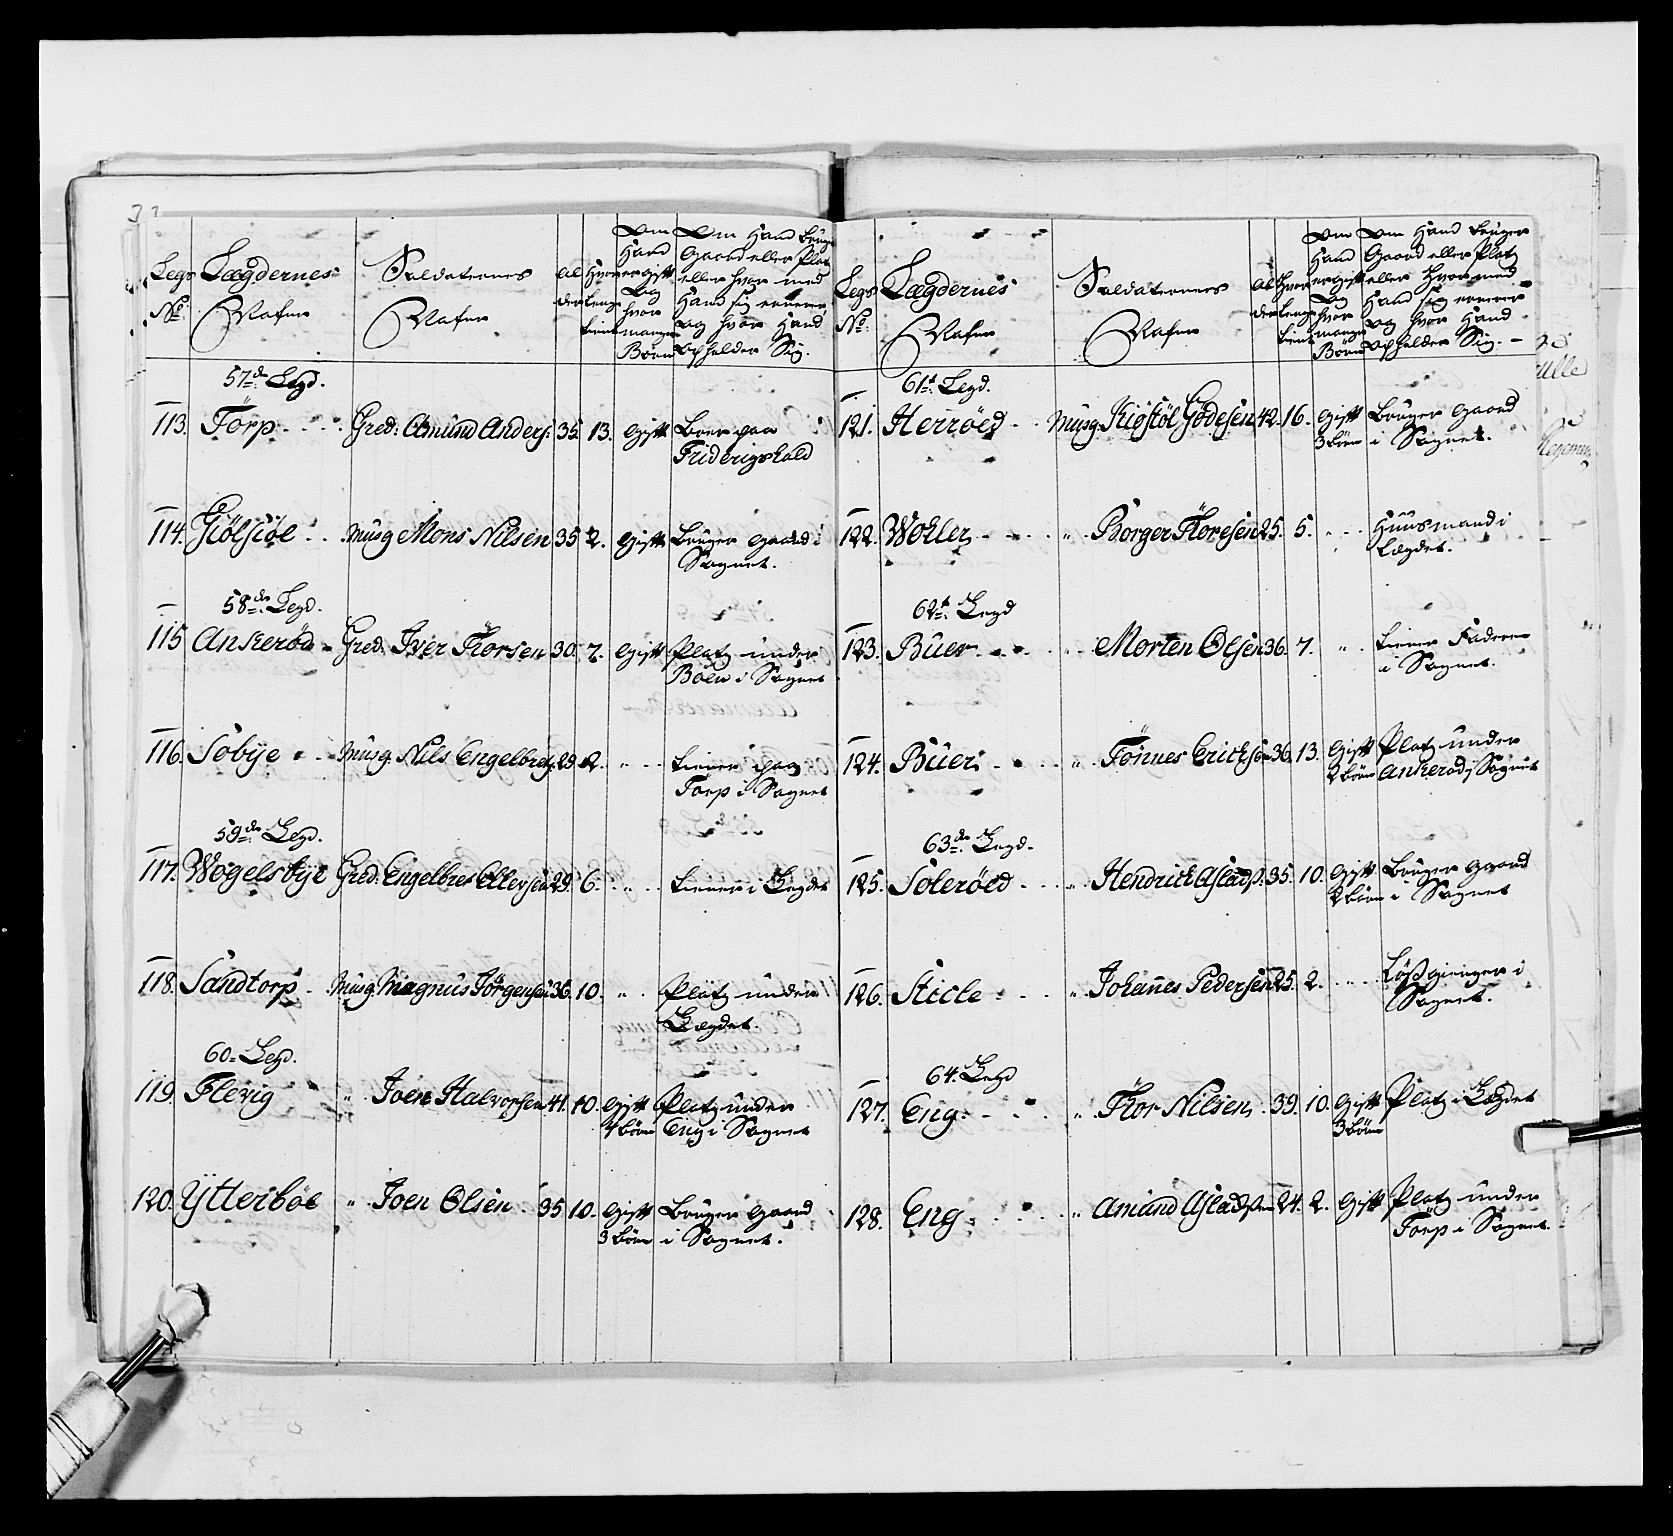 Legs No Lægdernes Nafne Soldaternes Nafne Alder Hvor lenge tient Om Hand er gift og hvor mange Børn Om Hand bruger Gaard eller Platz eller hvor med Hand sig ernerer og hvor Hand opholder Sig.
57de Legd.
113. Torp Gred: Amund Anders: 35. 13. Gift Boer paa
Friderigshald
114. Giölsiöe Musq Mons Nilsen 35 2. Gift Bruger Gaard i
Sognet.
58de Legd.
115 Ankeröd Gred. Iver Thorsen 30. 7. Gift Platz under
Böen i Sognet
116. Sobye Musq. Nils Engelbretz. 29. 2. " Tiener paa
Torp i Sognet
59de Legd.
117. Wogelsbye Gred. Engelbret Ellersen 29. 6. " Tiener i Legdet
118. Sandtorp Musq. Magnus Jörgensen 36. 10. " Platz under
Lægdet.
60. Legd.
119. Flevig " Joen Halvorsen 41. 10. Gift Platz under
1 börn Eng i Sognet
120. Ytterböe " Joen Olsen 35 10. Gift Bruger Gaard
3 börn i Sognet.
Legs No. Lægdernes Nafne Soldaternes Nafne Alder Hvor lenge tient Om Hand er gift og hvor mange Börn Om Hand bruger Gaard eller Platz eller hvor med Hand sig ernerer og hvor Hand opholder Sig.
61t. Legd.
121. Herröed Musq. Kiöstöl Godesen 42. 16. Gift Bruger Gaard
3 börn i Sognet.
122. Woller " Borger Thoresen 25. 5. " Huusmand i
Lægdet.
62t. Legd
123. Buer " Morten Olsen 36. 7. " Tiener Faderen
i Sognet.
124. Buer " Tönnes Ericksen 36. 13. Gift Platz under
2 börn Ankeröd i Sognet
63de. Legd.
125. Soleröed " Hendrick Aslads. 35. 10. Gift Bruger Gaard
2 börn i Sognet
126. Sticle " Johannes Pedersen 25. 2. Lösgienger i
Sognet.
64. Legd
127. Eng " Thor Nilsen 39. 10. Gift Platz i Lægdet
3 börn
128. Eng " Amund Asladsen 24. 2. Gift Platz under
Torp i Sognet.